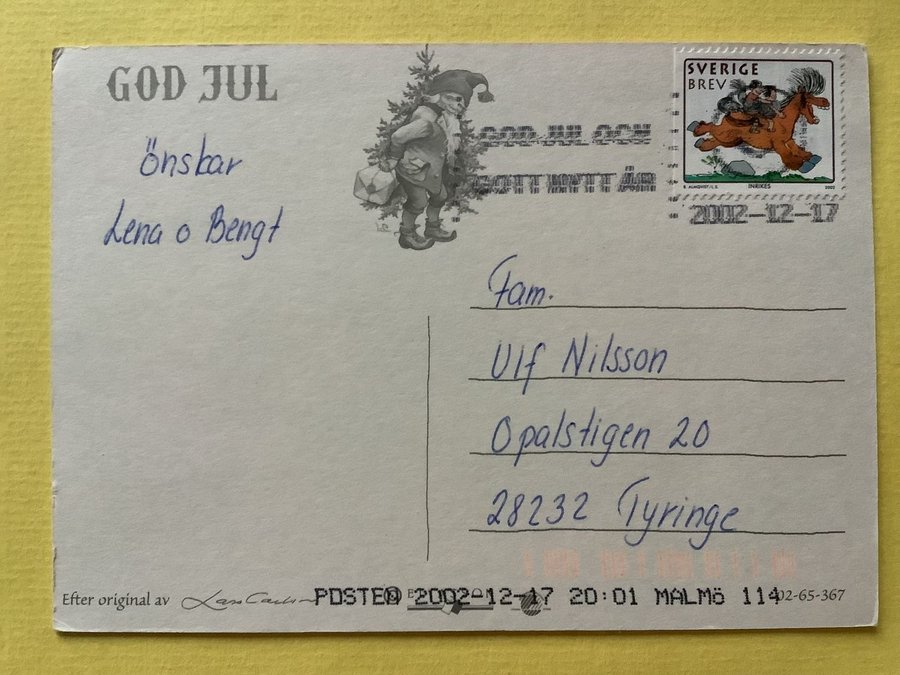 GOD JUL
önskar
Lena o Bengt
SVERIGE
BREV
INRIKES
2002
GOD JUL OCH
GOTT NYTT ÅR
2002-12-17
Fam.
Ulf Nilsson
Opalstigen 20
28232 Tyringe
Efter original av
POSTEN 2002-12-17 20:01 MALMÖ 114
02-65-367